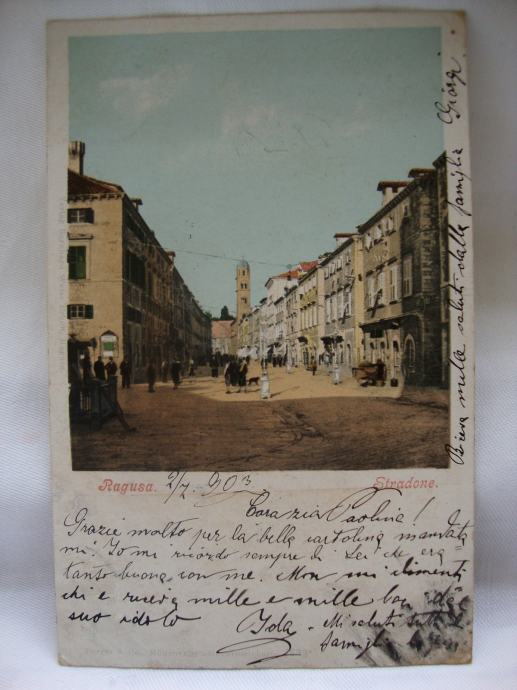 Ragusa. 2/7. 903 Stradone.
Cara zia Paolina!
Grazie molto per la bella cartolina mandata
mi. Io mi ricordo sempre di Lei che era
tanto buona con me. Non mi dimenti
chi e riceva mille e mille baci
suo idolo Ida. Mi saluti tutta
famiglia
mille saluti dalla famiglia Giorgi